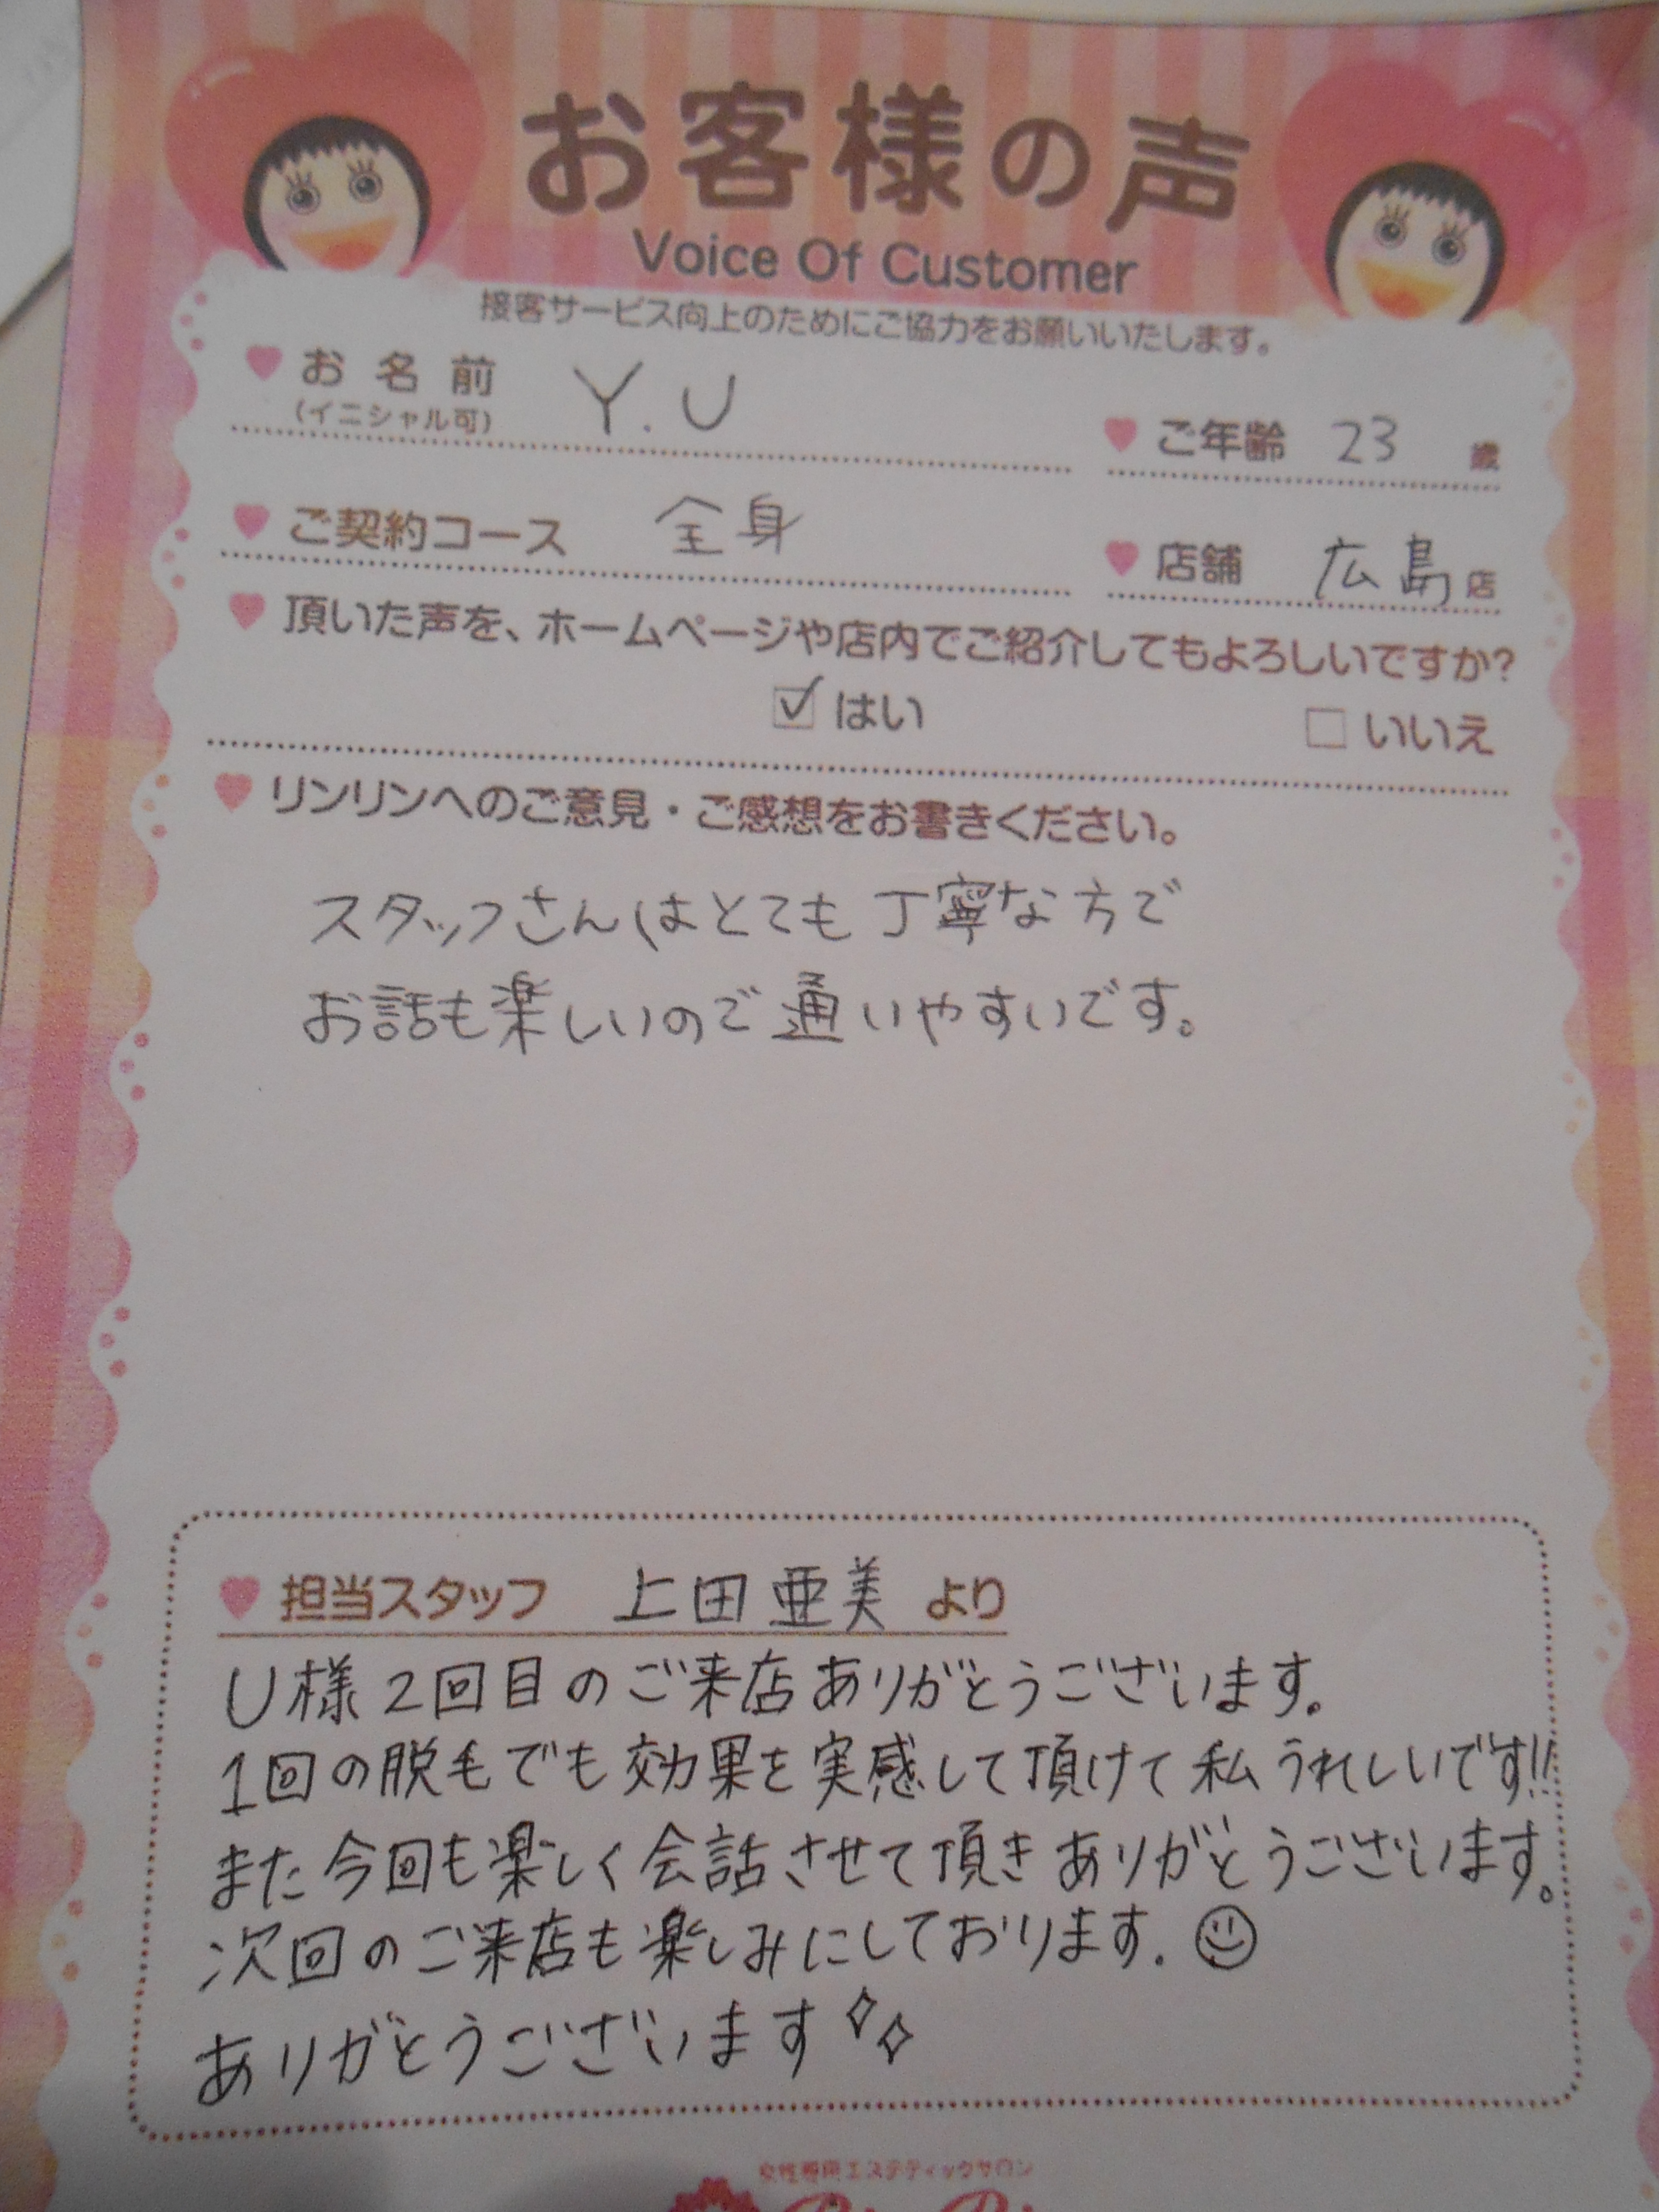 お客様の声
Voice Of Customer
接客サービス向上のためにご協力をお願いいたします。
お名前 Y.U
(イニシャル可)
ご年齢 23 歳
ご契約コース 全身
店舗 広島店
頂いた声を、ホームページや店内でご紹介してもよろしいですか?
はい いいえ
リンリンへのご意見・ご感想をお書きください。
スタッフさんはとても丁寧な方で
お話も楽しいので通いやすいです。
担当スタッフ 上田亜美 より
U様2回目のご来店ありがとうございます。
1回の脱毛でも効果を実感して頂けて私うれしいです!!
また今回も楽しく会話させて頂きありがとうございます。
次回のご来店も楽しみにしております.
ありがとうございます
女性専用エステティックサロン